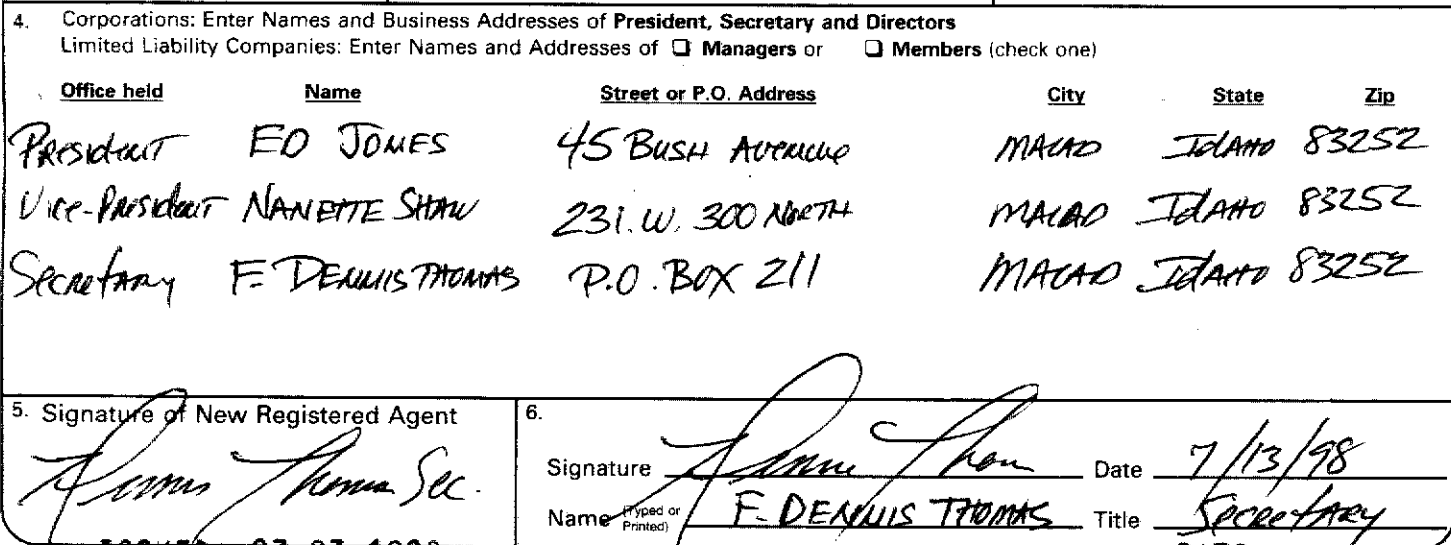 4. Corporations: Enter Names and Business Addresses of President, Secretary and Directors
Limited Liability Companies: Enter Names and Addresses of ❏ Managers or ❏ Members (check one)
Office held Name Street or P.O. Address City State Zip
President ED JONES 45 BUSH AVENUE MALAD IDAHO 83252
Vice-President NANETTE SHAW 231. W. 300 NORTH MALAD IDAHO 83252
Secretary F. DENNIS THOMAS P.O. BOX 211 MALAD IDAHO 83252
5. Signature of New Registered Agent 6.
Dennis Thomas Sec.
Signature Dennis Thomas Date 7/13/98
Name (Typed or Printed) F. DENNIS THOMAS Title Secretary